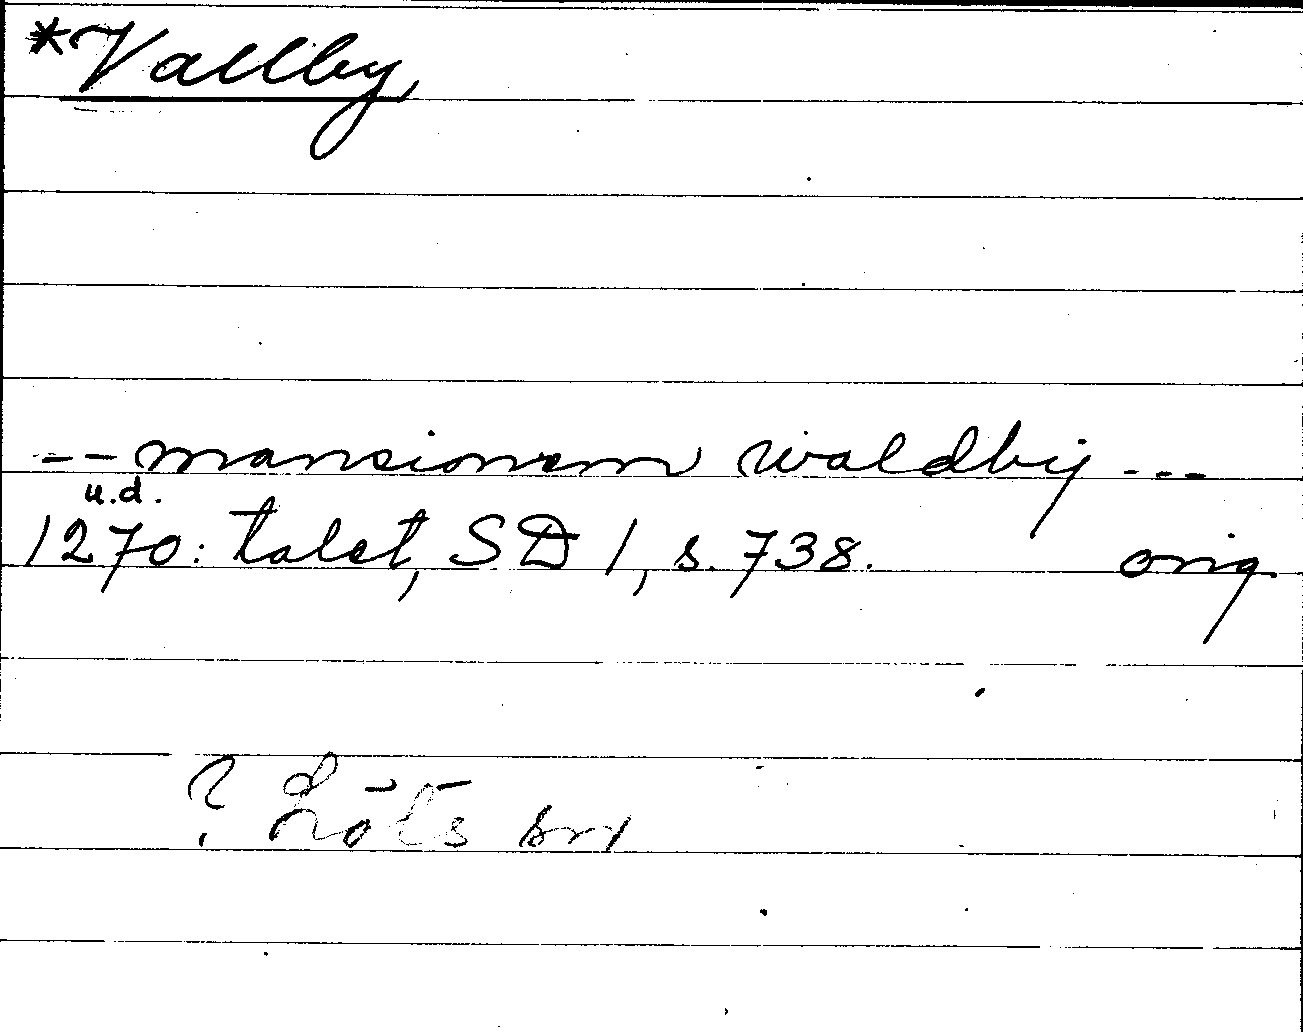 *Vallby
-- mansionem waldby ---
u.d.
1270: talet, SD 1, s. 738. orig
? Löts sn